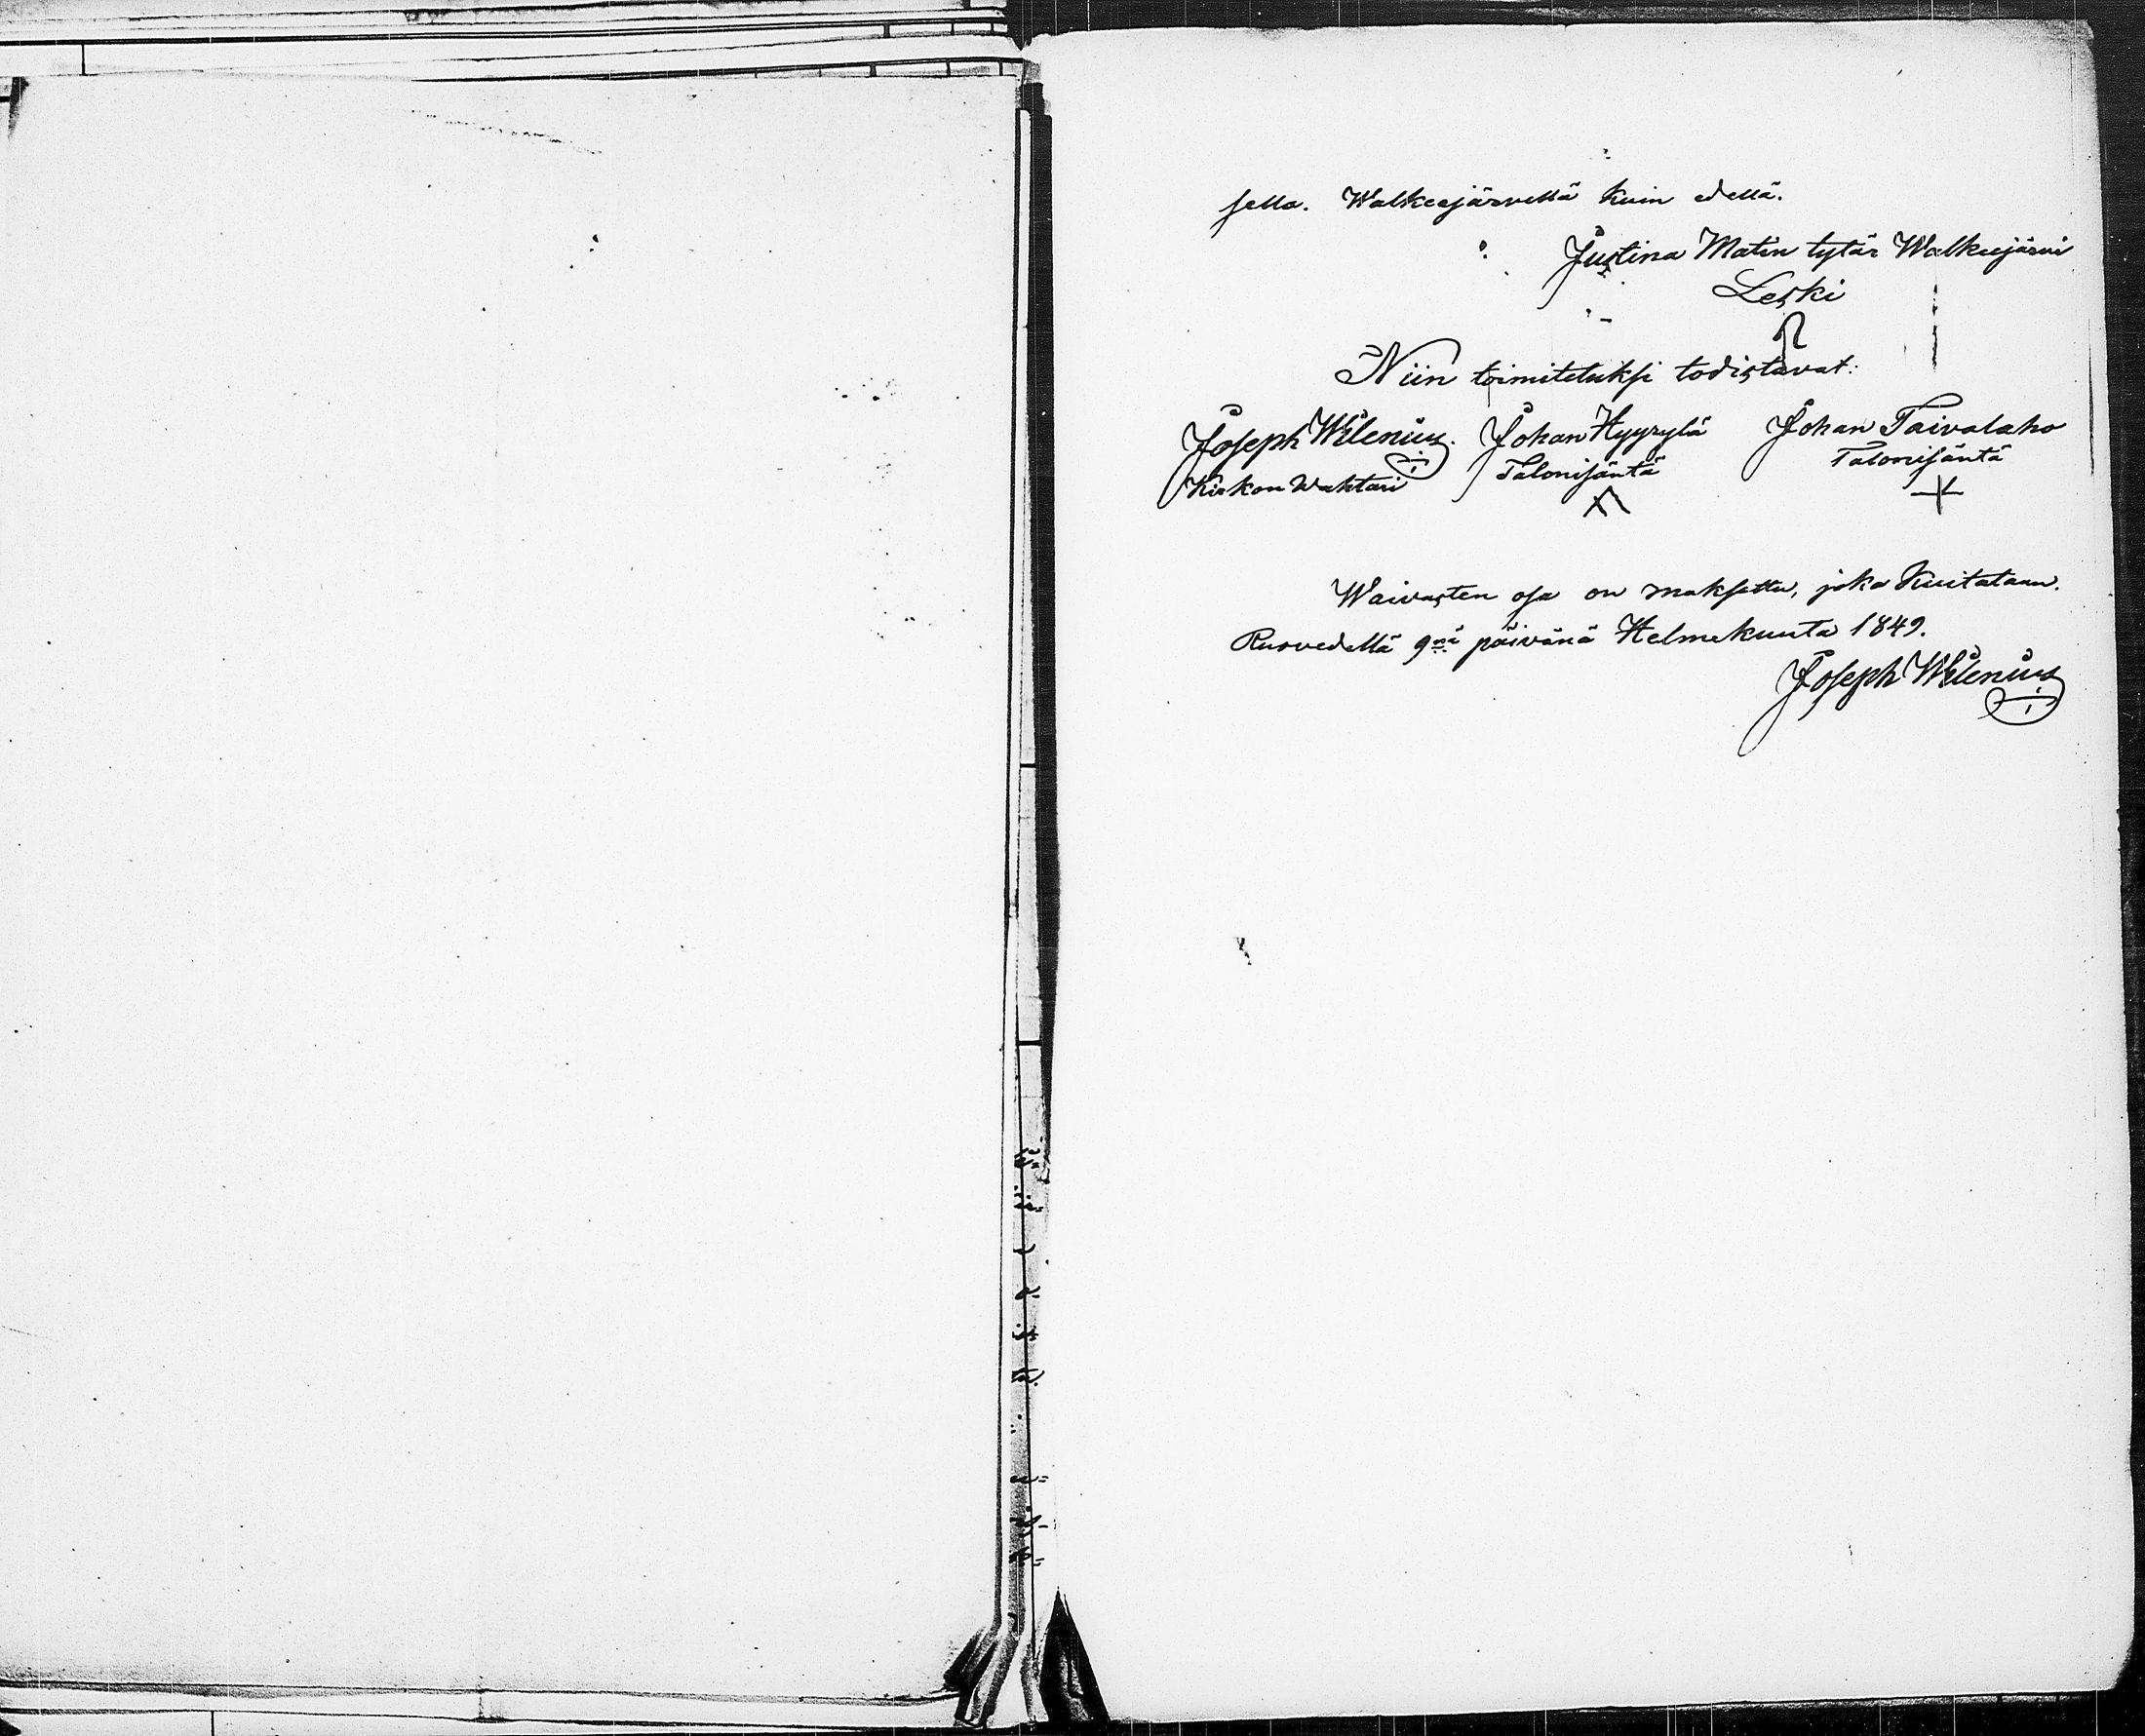 sella. Walkeajärvellä kuin edellä.
Justina Matin tytär Walkeajärvi
Leski
Niin toimitetuksi todistavat:
Joseph Wilenius. Johan Hyyrylä Johan Taivalaho
Kirkon Wahtari Talonisäntä Talonisäntä
Waivasten osa on maksettu, joka Kuitataan.
Ruovedellä 9nä päivänä Helmekuuta 1849.
Joseph Wilenius